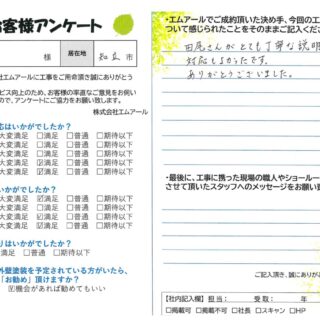 お客様アンケート
様 居在地 知立市
エムアールに工事をご用命頂き誠にありがとう
ビス向上のため、お客様の率直なご意見をお伺い
ので、アンケートにご協力をお願い致します。
株式会社エムアール
応はいかがでしたか?
大変満足 ☑満足 □普通 □期待以下
大変満足 ☑満足 □普通 □期待以下
大変満足 ☑満足 □普通 □期待以下
大変満足 ☑満足 □普通 □期待以下
いかがでしたか?
大変満足 ☑満足 □普通 □期待以下
大変満足 ☑満足 □普通 □期待以下
大変満足 ☑満足 □普通 □期待以下
りはいかがでしたか?
満足 □普通 □期待以下
外壁塗装を予定されている方がいたら、
「お勧め」頂けますか?
☑機会があれば勧めてもいい
・エムアールでご成約頂いた決め手、今回の工
ついて感じられたことをそのままご記入くださ
田尾さんがとても丁寧な説明
対応もよかったです。
ありがとうございました。
・最後に、工事に携った現場の職人やショールー
させて頂いたスタッフへのメッセージをお願い致
ご記入頂き、誠にありが
【社内記入欄】担当: 受取: 年
□掲載可 □掲載不可 □社長 □スキャン □HP